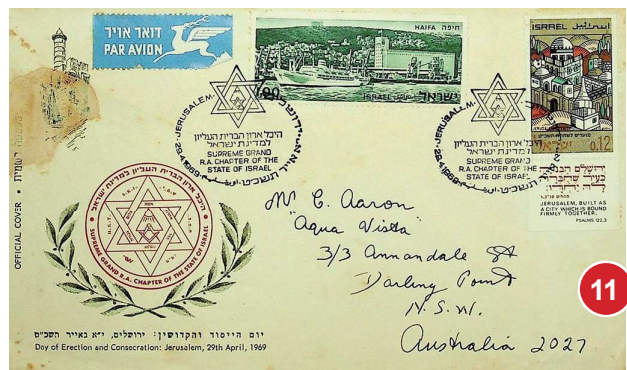 דואר אויר
PAR AVION
HAIFA חיפה
ISRAEL
ישראל
ISRAEL
ישראל
0.12
JERUSALEM
29.4.1969
היכל ארון הברית העליון
למדינת ישראל
SUPREME GRAND
R.A. CHAPTER OF THE
STATE OF ISRAEL
JERUSALEM
29.4.1969
היכל ארון הברית העליון
למדינת ישראל
SUPREME GRAND
R.A. CHAPTER OF THE
STATE OF ISRAEL
ירושלים הבנויה
כעיר שחברה
לה יחדו
JERUSALEM, BUILT AS
A CITY WHICH IS BOUND
FIRMLY TOGETHER.
PSALMS 122,3
OFFICIAL COVER • מעטפה רשמית
היכל ארון הברית העליון למדינת ישראל
SUPREME GRAND R.A. CHAPTER OF THE STATE OF ISRAEL
Mr C. Aaron
"Aqua Vista"
3/3 Annandale St
Darling Point
N.S.W.
Australia 2027
11
יום הייסוד והקדושין: ירושלים, י״א באייר תשכ״ט
Day of Erection and Consecration: Jerusalem, 29th April, 1969